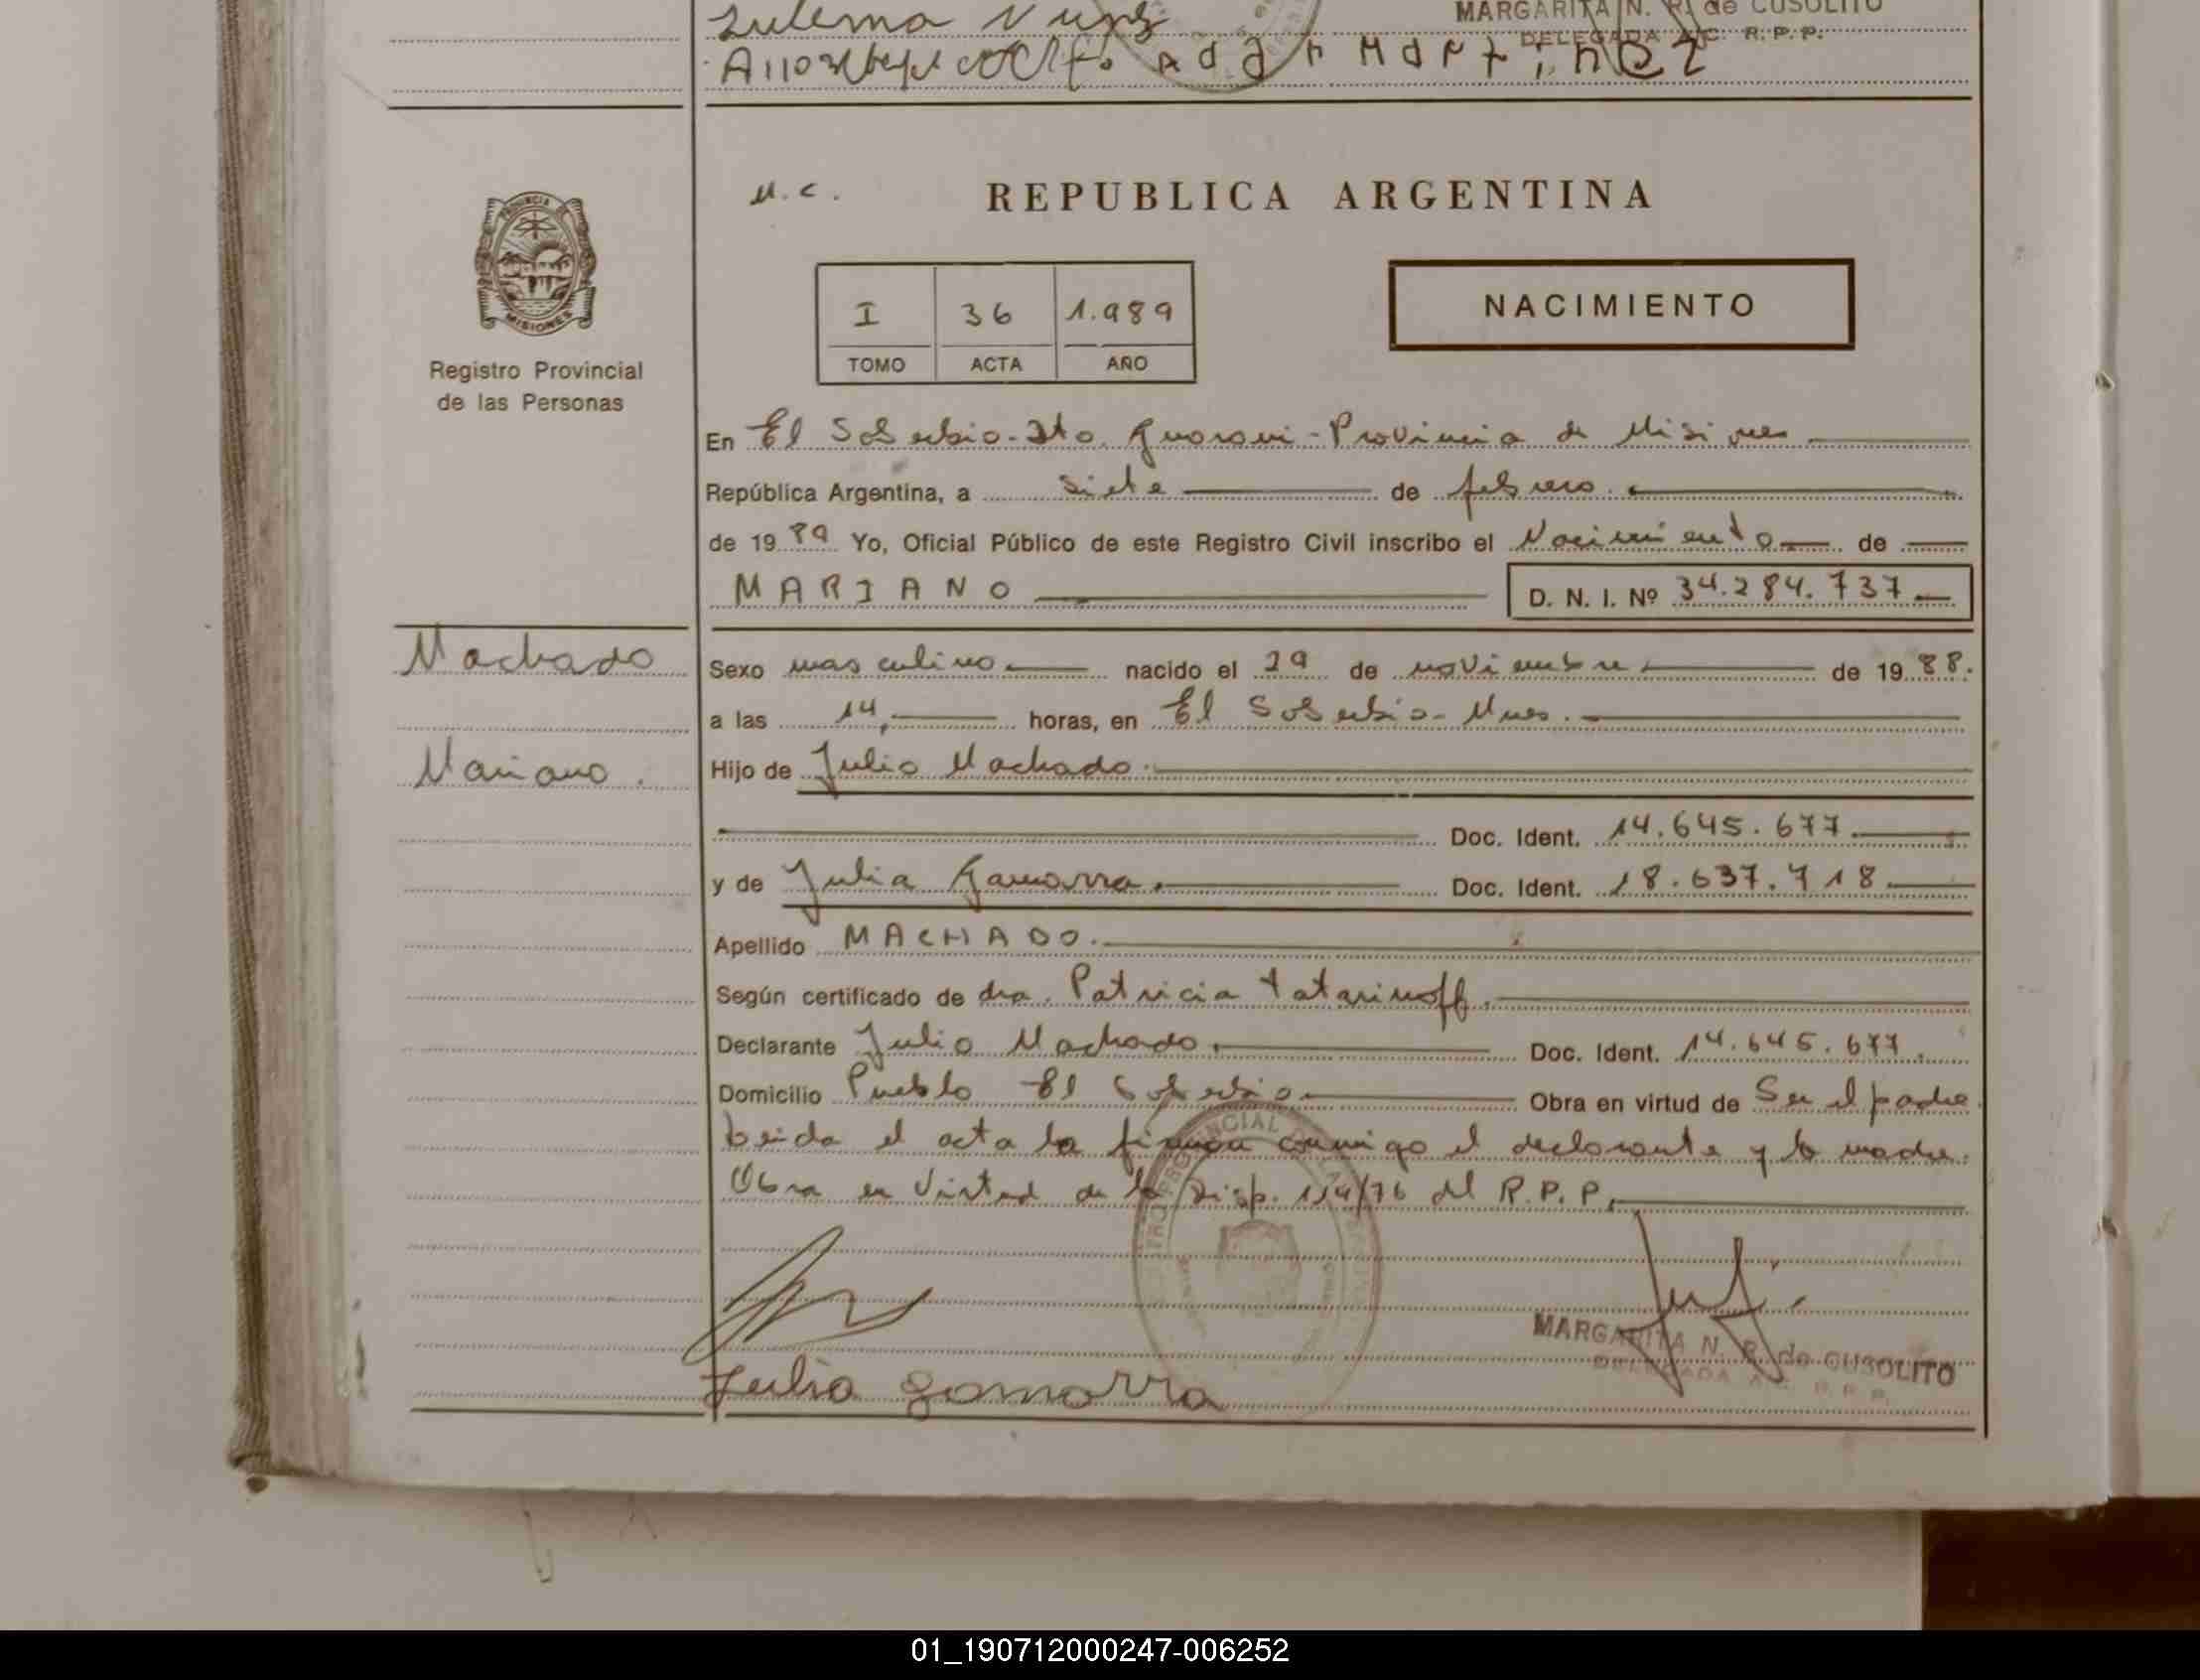 Zulema Nuñz
MARGARITA N. R. de CUSOLITO
DELEGADA A.C. R.P.P.
Adan Martinez
PROVINCIA DE
MISIONES
Registro Provincial
de las Personas
u.c.
REPUBLICA ARGENTINA
I 36 1.989
TOMO ACTA AÑO
NACIMIENTO
En El Soberbio-Dto. Guarani-Provincia de Misiones
República Argentina, a siete de febrero.
de 1989 Yo, Oficial Público de este Registro Civil inscribo el Nacimiento de
MARIANO
D. N. I. Nº 34.284.737
Machado
Mariano.
Sexo masculino nacido el 29 de noviembre de 1988.
a las 14, horas, en El Soberbio- Mnes.
Hijo de Julio Machado.
Doc. Ident. 14.645.677
y de Julia Gamarra. Doc. Ident. 18.637.718
Apellido MACHADO.
Según certificado de dra. Patricia Tatarinoff.
Declarante Julio Machado. Doc. Ident. 14.645.677.
Domicilio Pueblo El Soberbio Obra en virtud de Ser el padre
Leida el acta la firman conmigo el declarante y la madre.
Obra en Virtud de la Disp. 114/76 del R.P.P.
Julia gamarra
MARGARITA N. R. de CUSOLITO
DELEGADA A.C. R.P.P.
01_190712000247-006252